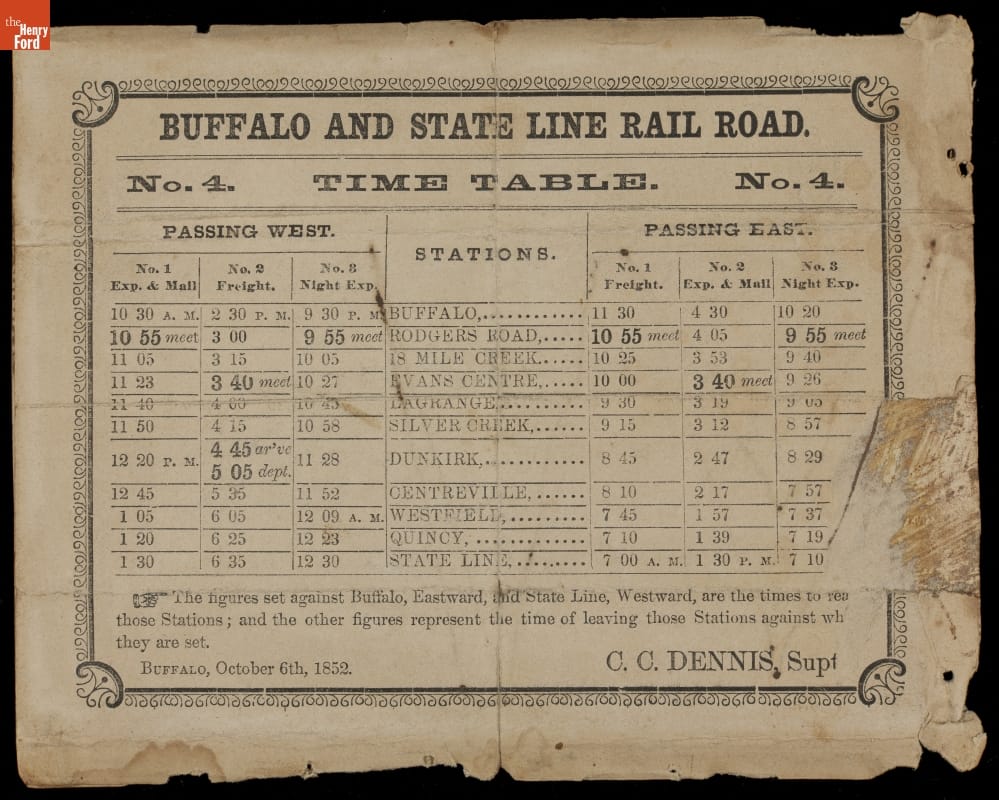 the
Henry
Ford
BUFFALO AND STATE LINE RAIL ROAD.
No. 4. TIME TABLE. No. 4.
PASSING WEST. STATIONS. PASSING EAST.
No. 1 No. 2 No. 3 No. 1 No. 2 No. 3
Exp. & Mail Freight. Night Exp. Freight. Exp. & Mail Night Exp.
10 30 A. M. 2 30 P. M. 9 30 P. M. BUFFALO,............ 11 30 4 30 10 20
10 55 meet 3 00 9 55 meet RODGERS ROAD,..... 10 55 meet 4 05 9 55 meet
11 05 3 15 10 05 18 MILE CREEK..... 10 25 3 53 9 40
11 23 3 40 meet 10 27 EVANS CENTRE,..... 10 00 3 40 meet 9 26
11 40 4 00 10 45 LAGRANGE,.......... 9 30 3 19 9 05
11 50 4 15 10 58 SILVER CREEK,...... 9 15 3 12 8 57
12 20 P. M. 4 45 ar've 5 05 dept. 11 28 DUNKIRK,............ 8 45 2 47 8 29
12 45 5 35 11 52 CENTREVILLE,...... 8 10 2 17 7 57
1 05 6 05 12 09 A. M. WESTFIELD,......... 7 45 1 57 7 37
1 20 6 25 12 23 QUINCY,............. 7 10 1 39 7 19
1 30 6 35 12 30 STATE LINE,......... 7 00 A. M. 1 30 P. M. 7 10
☞ The figures set against Buffalo, Eastward, and State Line, Westward, are the times to rea
those Stations; and the other figures represent the time of leaving those Stations against wh
they are set.
BUFFALO, October 6th, 1852. C. C. DENNIS, Supt